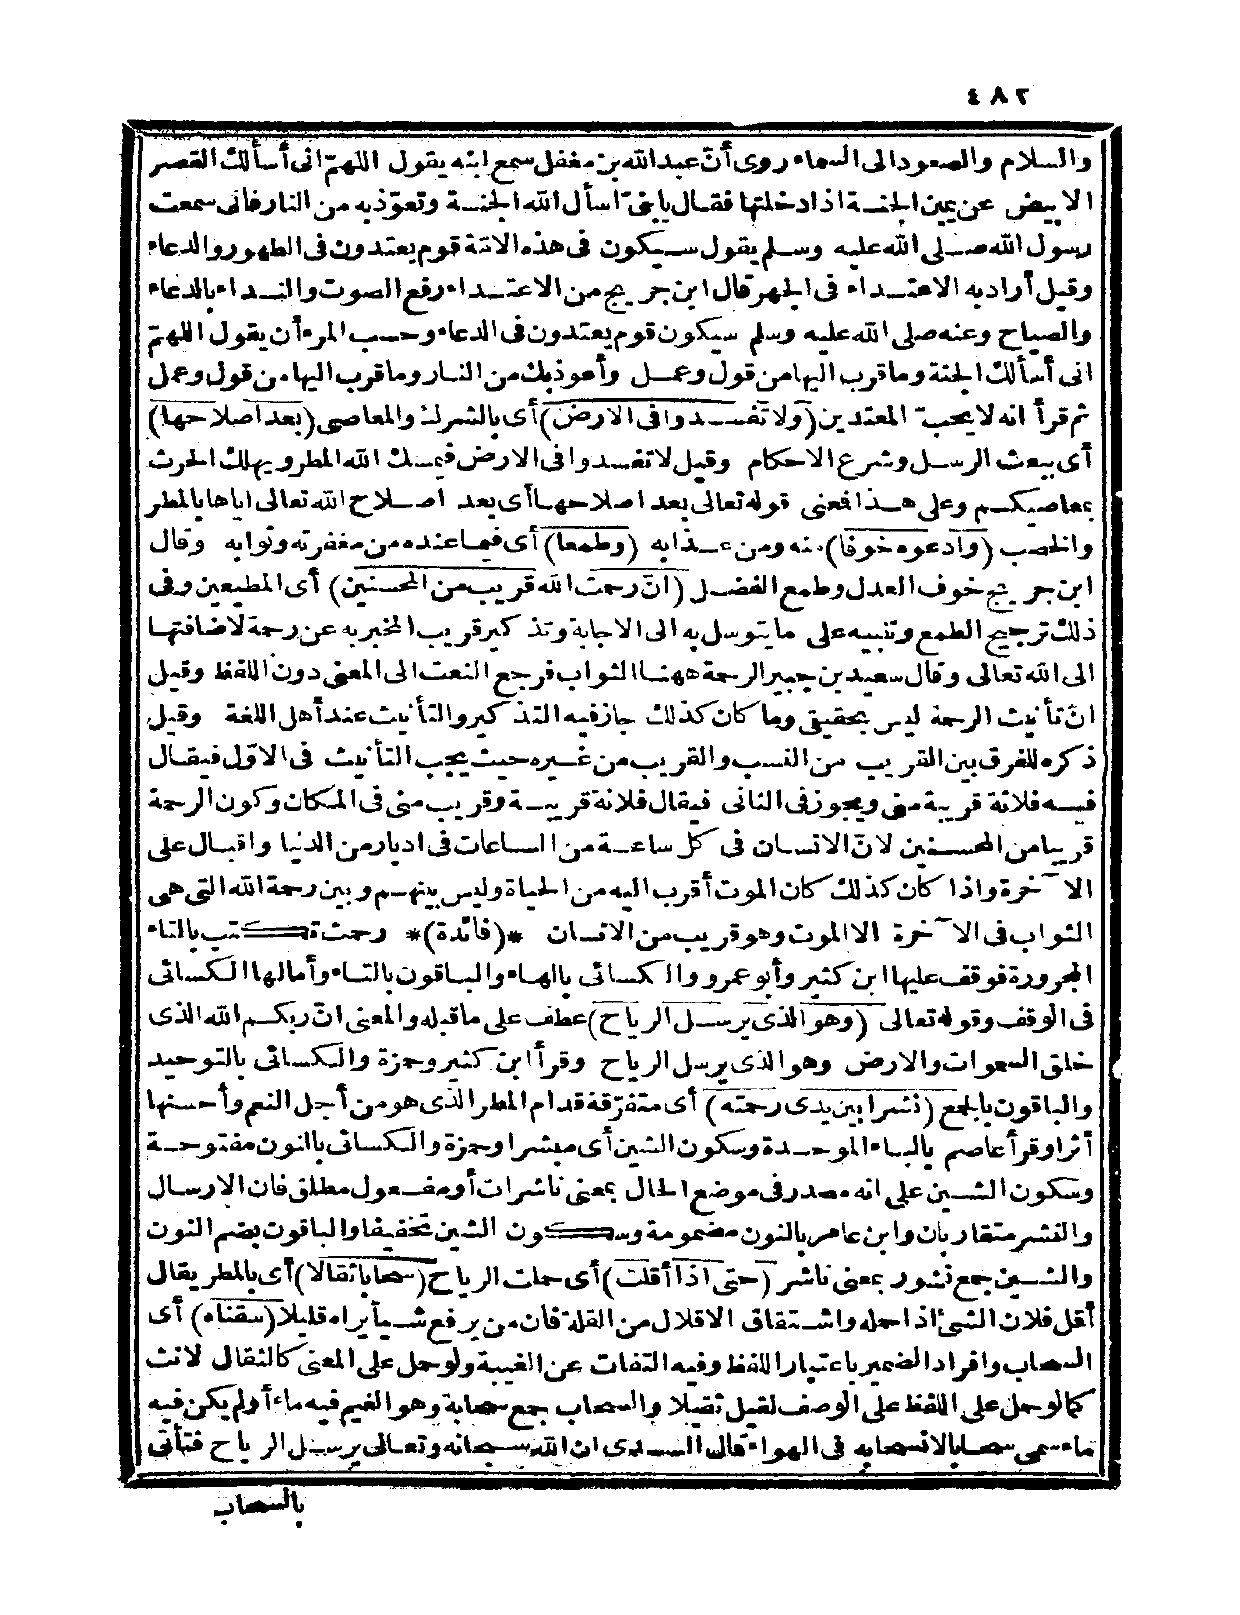 ٤٨٢
والسلام والصعود الى السماء روى أنّ عبد الله بن مغفل سمع ابنه يقول اللهمّ انى أسألك القصر
الابيض عن يمين الجنة اذا دخلتها فقال يا بنىّ اسأل الله الجنة وتعوّذ به من النار فانى سمعت
رسول الله صلى الله عليه وسلم يقول سيكون فى هذه الامّة قوم يعتدون فى الطهور والدعاء
وقيل أراد به الاعتداء فى الجهر قال ابن جريج من الاعتداء رفع الصوت والنداء بالدعاء
والصياح وعنه صلى الله عليه وسلم سيكون قوم يعتدون فى الدعاء وحسب المرء أن يقول اللهمّ
انى أسألك الجنة وما قرب اليها من قول وعمل وأعوذ بك من النار وما قرب اليها من قول وعمل
ثم قرأ انه لا يحب المعتدين (ولا تفسدوا فى الارض) أى بالشرك والمعاصى (بعد اصلاحها)
أى ببعث الرسل وشرع الاحكام وقيل لا تفسدوا فى الارض فيمسك الله المطر ويهلك الحرث
بمعاصيكم وعلى هذا فمعنى قوله تعالى بعد اصلاحها أى بعد اصلاح الله تعالى اياها بالمطر
والخصب (وادعوه خوفا) منه ومن عذابه (وطمعا) أى فيما عنده من مغفرته وثوابه وقال
ابن جريج خوف العدل وطمع الفضل (انّ رحمت الله قريب من المحسنين) أى المطيعين وفى
ذلك ترجيح الطمع وتنبيه على ما يتوسل به الى الاجابة وتذكير قريب المخبر به عن رحمة لاضافتها
الى الله تعالى وقال سعيد بن جبير الرحمة ههنا الثواب فرجع النعت الى المعنى دون اللفظ وقيل
انّ تأنيث الرحمة ليس بحقيقى وما كان كذلك جاز فيه التذكير والتأنيث عند أهل اللغة وقيل
ذكره للفرق بين القريب من النسب والقريب من غيره حيث يجب التأنيث فى الاوّل فيقال
فيه فلانة قريبة منى ويجوز فى الثانى فيقال فلانة قريبة وقريب منى فى المكان وكون الرحمة
قريبا من المحسنين لانّ الانسان فى كل ساعة من الساعات فى ادبار من الدنيا واقبال على
الآخرة واذا كان كذلك كان الموت أقرب اليه من الحياة وليس بينهم وبين رحمة الله التى هى
الثواب فى الآخرة الا الموت وهو قريب من الانسان *(فائدة)* رحمت كتب بالتاء
المجرورة فوقف عليها ابن كثير وأبو عمرو والكسائى بالهاء والباقون بالتاء وأمالها الكسائى
فى الوقف وقوله تعالى (وهو الذى يرسل الرياح) عطف على ما قبله والمعنى انّ ربكم الله الذى
خلق السموات والارض وهو الذى يرسل الرياح وقرأ ابن كثير وحمزة والكسائى بالتوحيد
والباقون بالجمع (نشرا بين يدى رحمته) أى متفرّقة قدام المطر الذى هو من أجل النعم وأحسنها
أثرا وقرأ عاصم بالباء الموحدة وسكون الشين أى مبشرا وحمزة والكسائى بالنون مفتوحة
وسكون الشين على انه مصدر فى موضع الحال بمعنى ناشرات أو مفعول مطلق فان الارسال
والنشر متقاربان وابن عامر بالنون مضمومة وسكون الشين تخفيفا والباقون بضم النون
والشين جمع نشور بمعنى ناشر (حتى اذا أقلت) أى حملت الرياح (سحابا ثقالا) أى بالمطر يقال
أقل فلان الشئ اذا حمله واشتقاق الاقلال من القلة فان من يرفع شيأ يراه قليلا (سقناه) أى
السحاب وافراد الضمير باعتبار اللفظ وفيه التفات عن الغيبة ولو حمل على المعنى كالثقال لانث
كما لو حمل على اللفظ على الوصف لقيل ثقيلا والسحاب جمع سحابة وهو الغيم فيه ماء أو لم يكن فيه
ماء سمى سحابا لانسحابه فى الهواء قال السدى ان الله سبحانه وتعالى يرسل الرياح فتأتى
بالسحاب